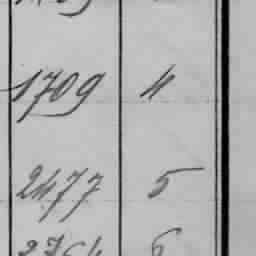 1709 4
2477 5
6